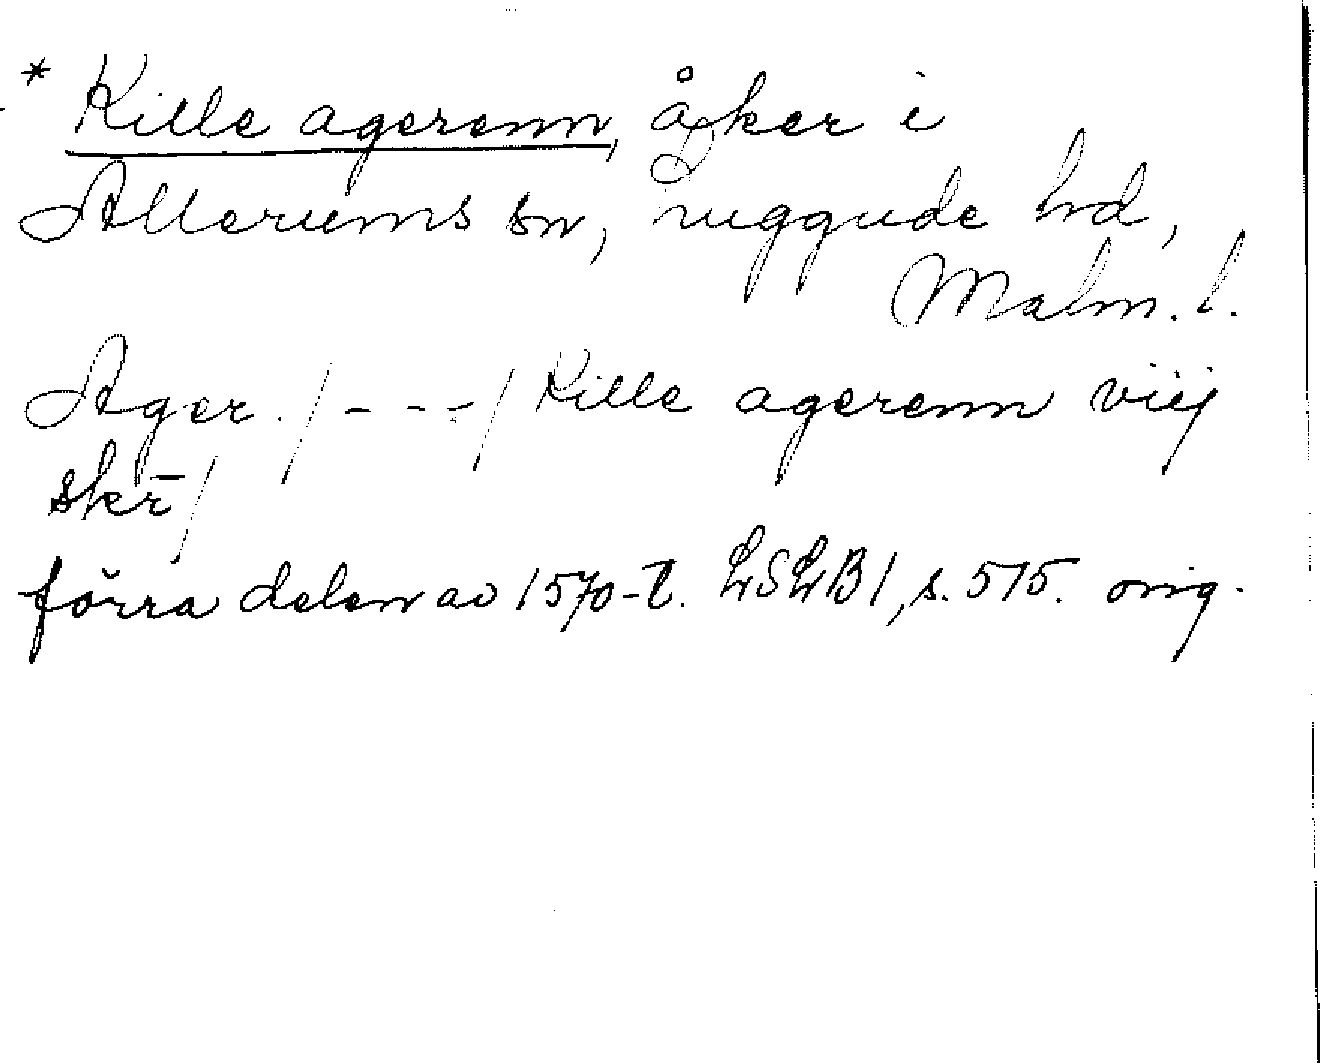 * Kille agerenn, åker i
Allerums sn, Luggude hd,
Malm. l.
Ager. /---/ Kille agerenn viij
skr̄/
förra delen av 1570-t. LSLB1, s. 515. orig.